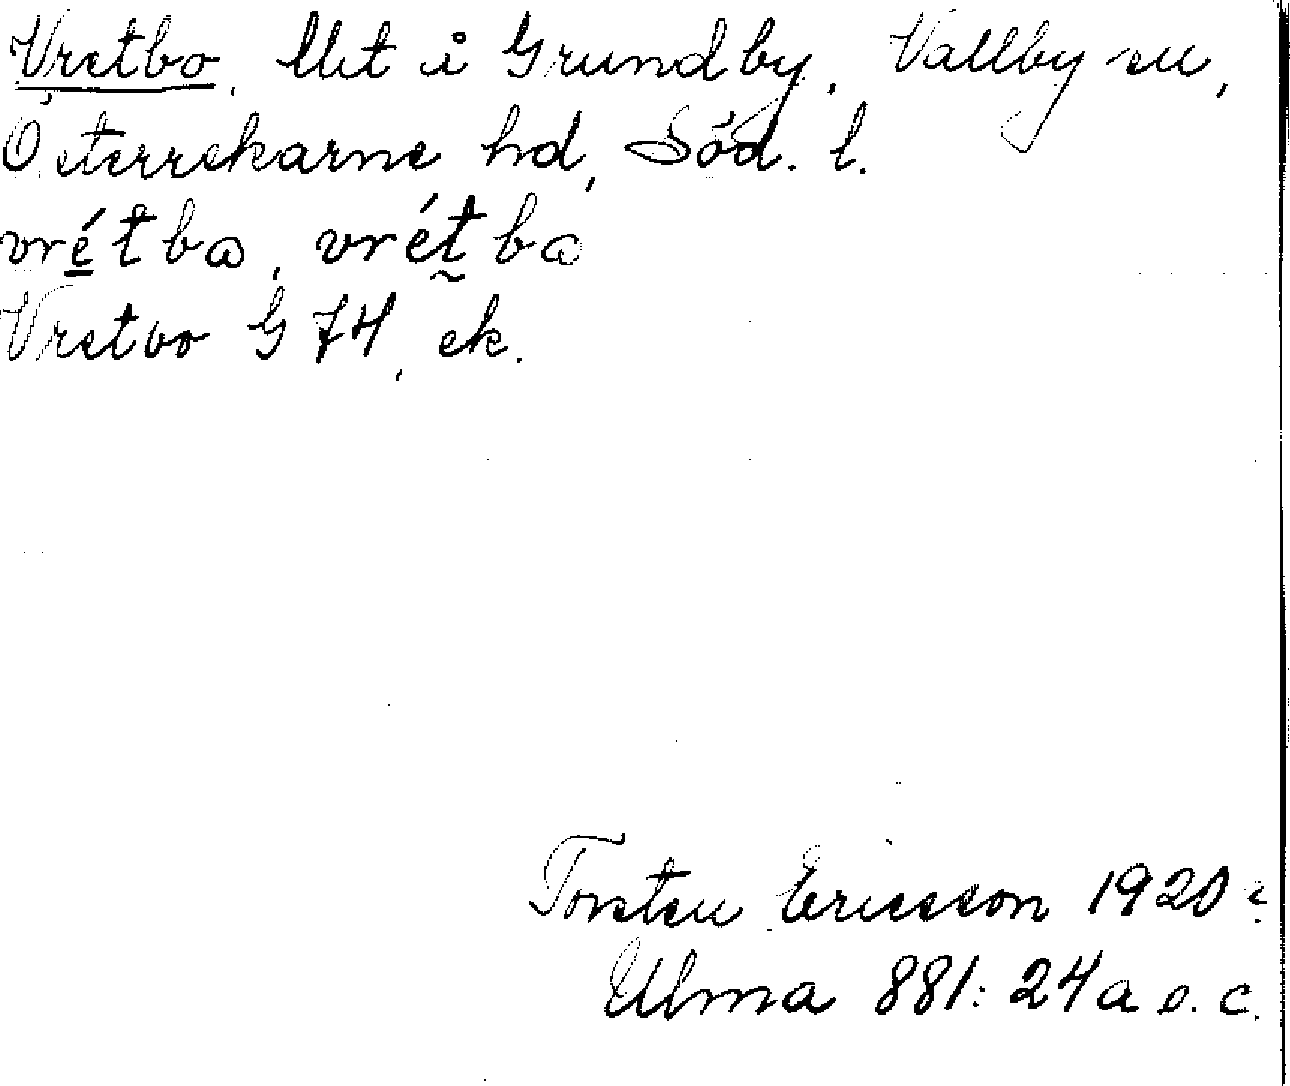 Vretbo, Utet i Grundby, Vallby sn,
Österrekarne hd, Söd. l.
vrétba, vrétba
Vretbo G 74, ek.
Torsten Ericsson 1920
Ulma 881: 24 a s. c.